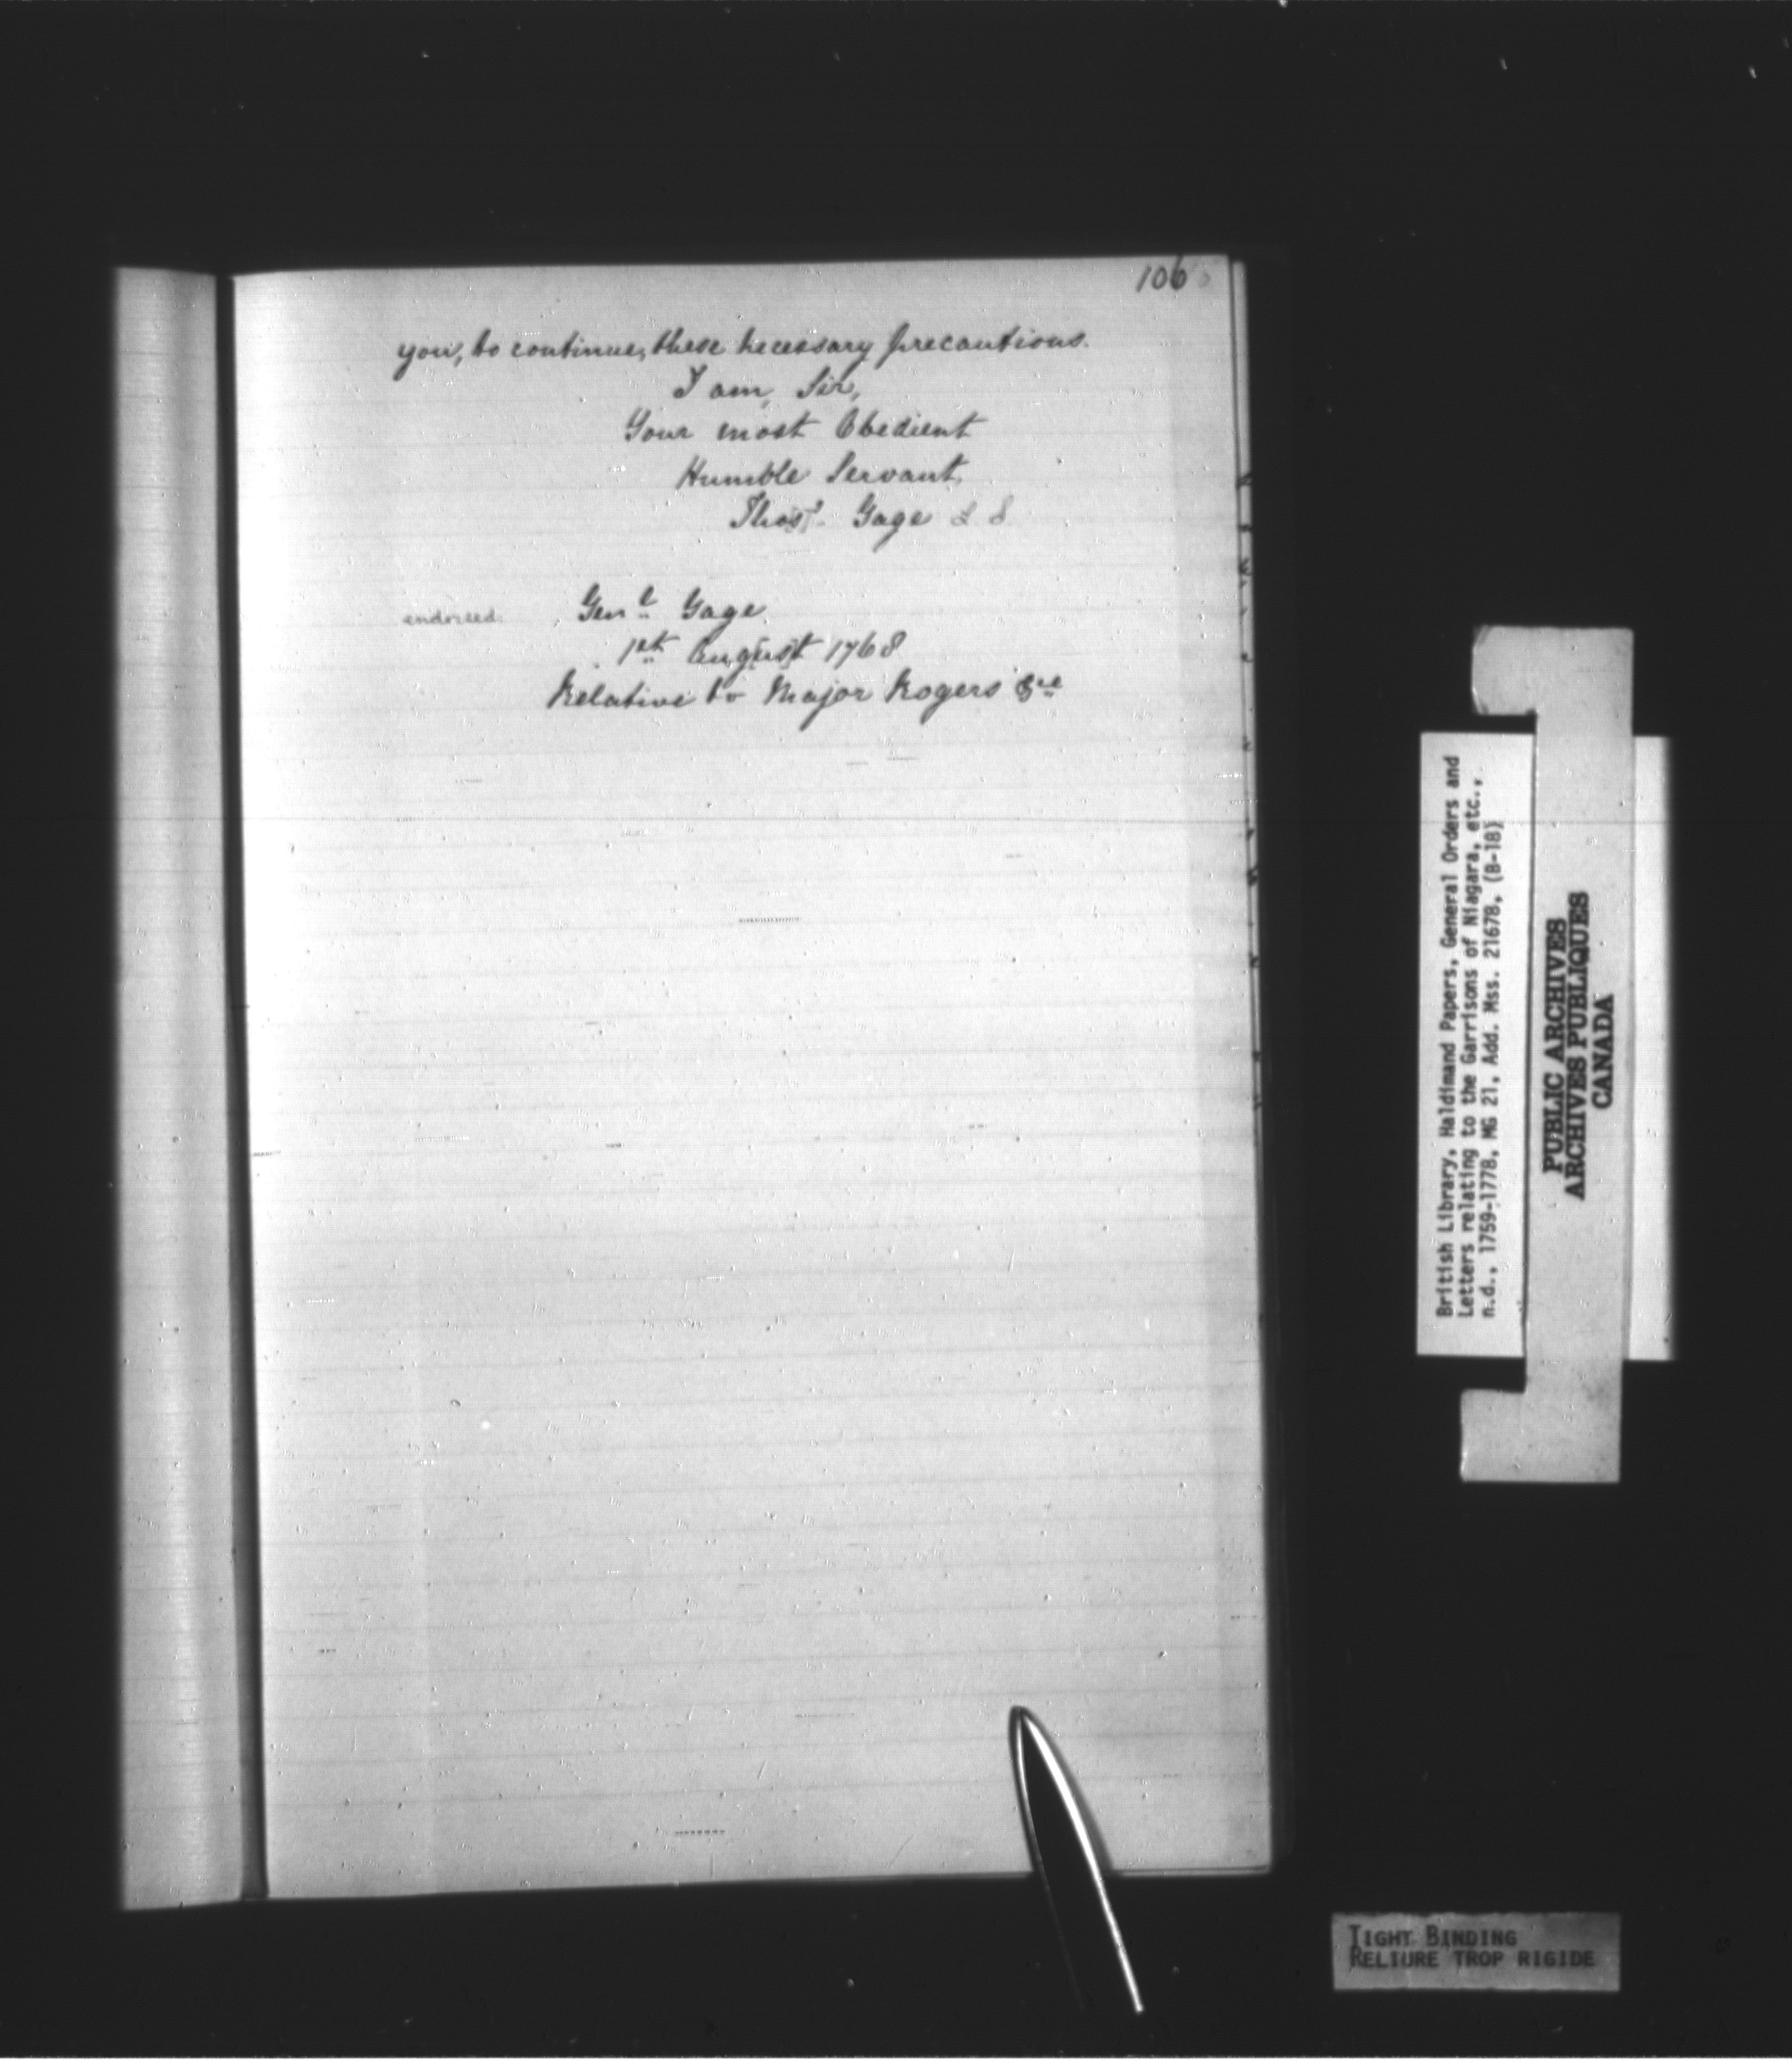 106
you, to continue, these necessary precautions.
I am, Sir,
Your most Obedient
Humble Servant,
Thos. Gage
endorsed. Genl Gage
1st August 1768
Relative to Major Rogers &ce
British Library, Haldimand Papers, General Orders and
Letters relating to the Garrisons of Niagara, etc.,
n.d., 1759-1778, MG 21, Add. Mss. 21678, (B-18)
PUBLIC ARCHIVES
ARCHIVES PUBLIQUES
CANADA
TIGHT BINDING
RELIURE TROP RIGIDE